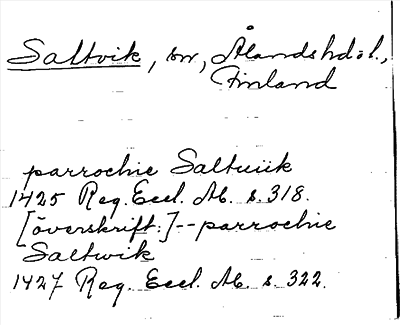 Saltvik, sn, Ålandshdöl.,
Finland
parrochie Saltuiik
1425 Reg. Eccl. Ab. s. 318.
[överskrift:]--parrochie
Saltwik
1427 Reg. Eccl. Ab. s. 322.